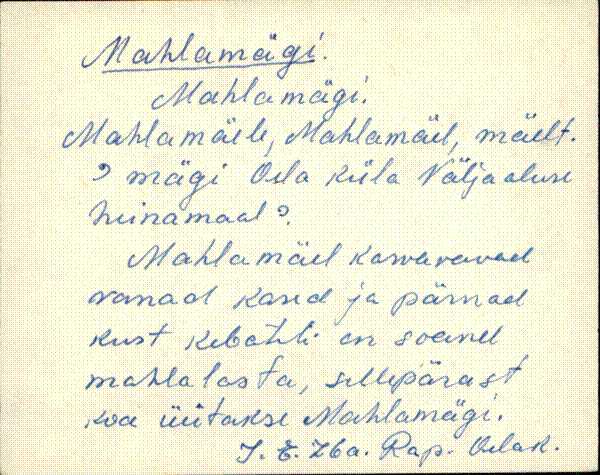 Mahlamägi.
Mahlamägi.
Mahlamäele, Mahlamäel, mäelt.
? mägi Oela küla Väljaaluse
heinamaal?.
Mahlamäel kasvavad
vanad kased ja pärnad
kust kebahti on soand
mahla lasta, sellepärast
koa üitakse Mahlamägi.
J. E. 26a. Rap. Oelak.